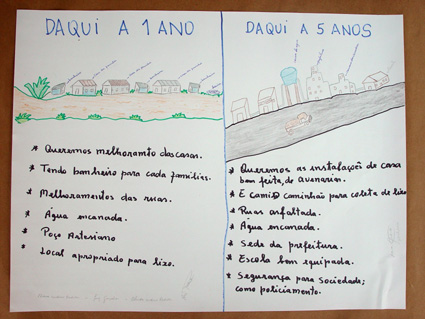 DAQUI A 1 ANO
* Queremos melhoramto das casas.
* Tendo banheiro para cada familias.
* Melhoramentos das ruas.
* Água encanada.
* Poço Artesiano
* Local apropriado para lixo.
DAQUI A 5 ANOS
* Queremos as instalações de casa
bem feita, de avenarias.
* E camisõ caminhão para coleta de lixo
* Ruas asfaltada.
* Água encanada.
* Sede da prefeitura.
* Escola bem equipada.
* Segurança para sociedade;
como policiamento.